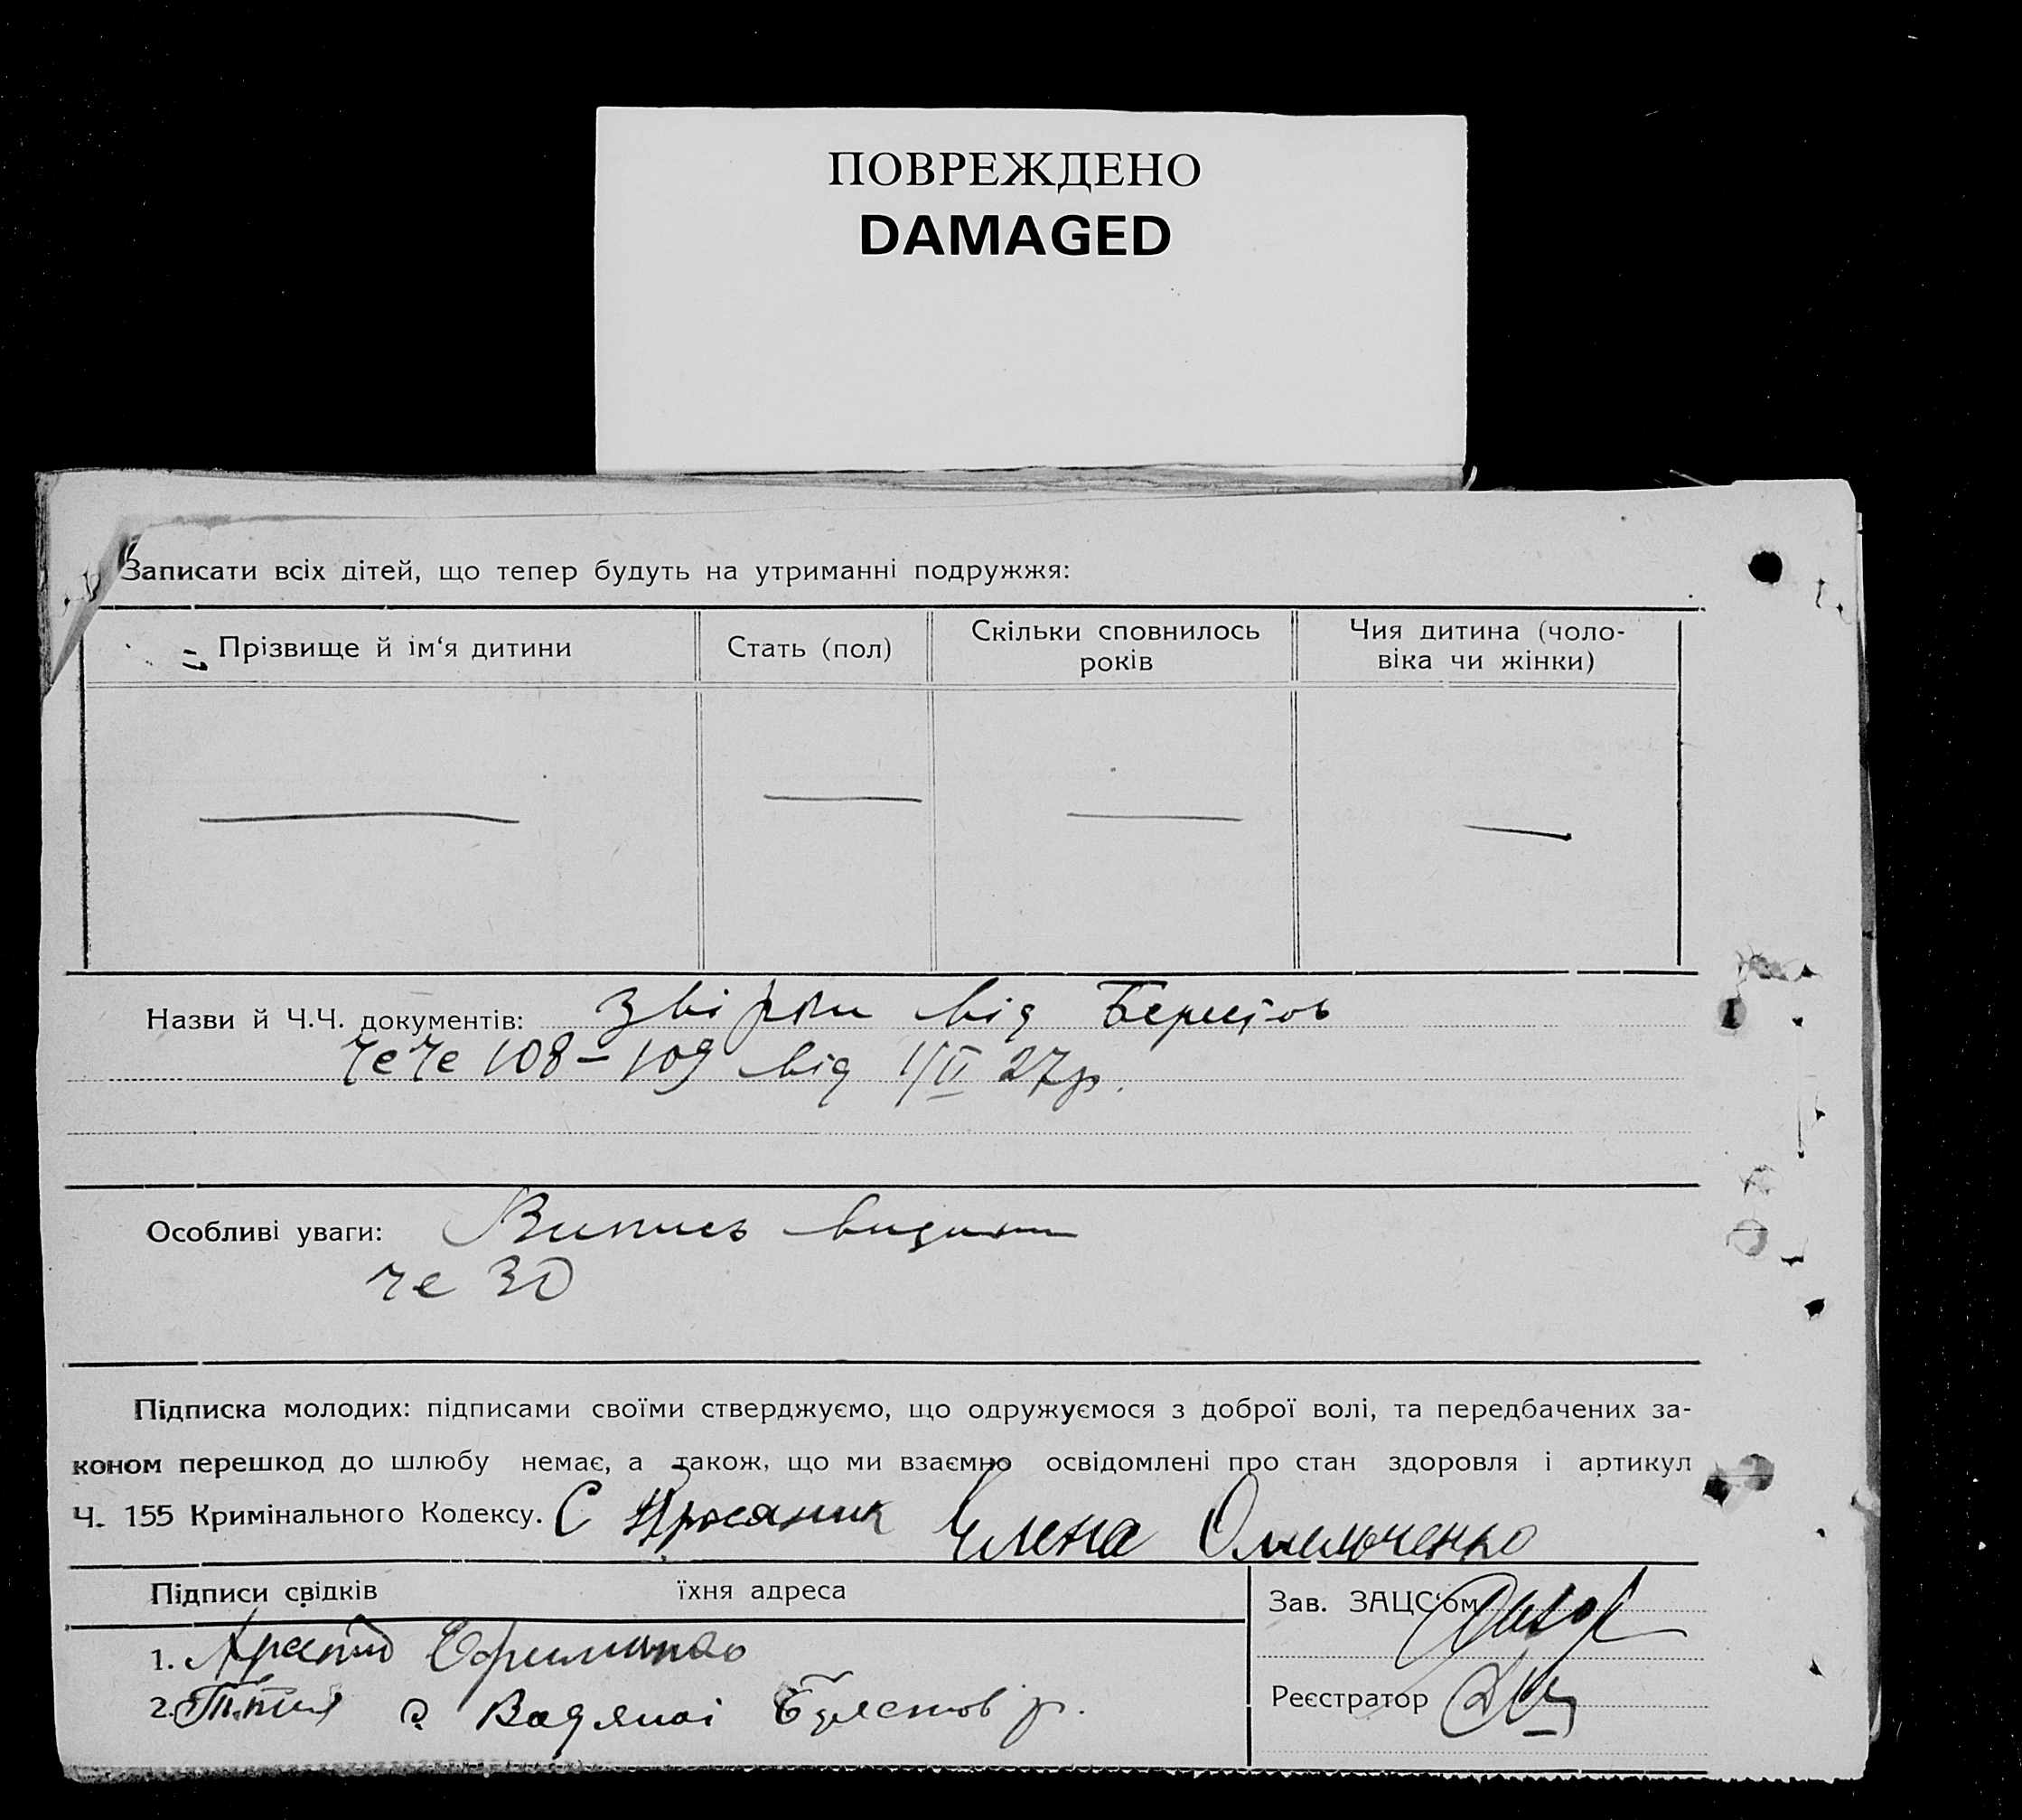 ПОВРЕЖДЕНО
DAMAGED
Записати всіх дітей, що тепер будуть на утриманні подружжя:
Прізвище й ім‘я дитини
Стать (пол)
Скільки сповнилось
років
Чия дитина (чоло-
віка чи жінки)
Назви й Ч.Ч. документів: від
ЧеЧе 108–109 від 1/II 27р.
Особливі уваги: Випись
че 30
Підписка молодих: підписами своїми стверджуємо, що одружуємося з доброї волі, та передбачених за-
коном перешкод до шлюбу немає, а також, що ми взаємно освідомлені про стан здоровля і артикул
Ч. 155 Кримінального Кодексу. С Елена Омельченко
Підписи свідків їхня адреса
Зав. ЗАЦС‘ом
1.
2. с Водяної р.
Реєстратор